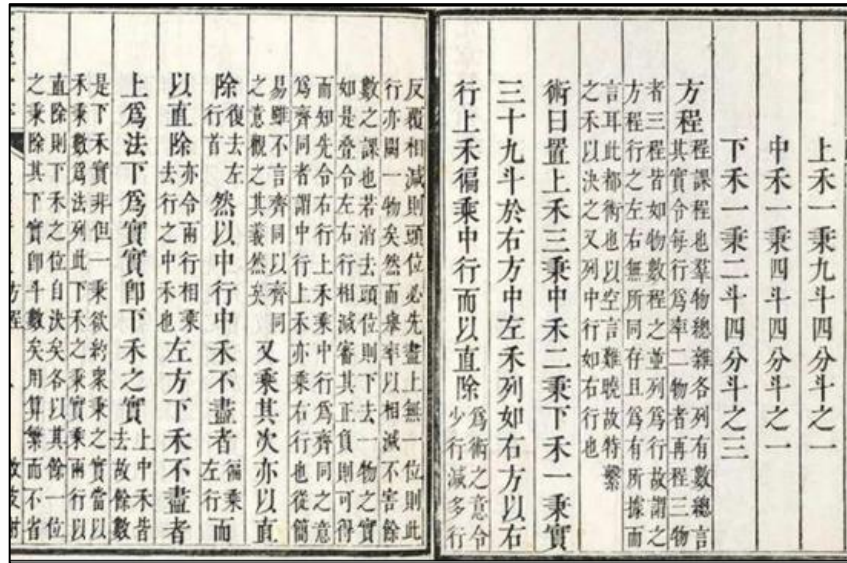 上禾一秉九斗四分斗之一
中禾一秉四斗四分斗之一
下禾一秉二斗四分斗之三
方程程課程也羣物總雜各列有數總言
其實令每行爲率二物者再程三物
者三程皆如物數程之並列爲行故謂之
方程行之左右無所同存且爲有所據而
言耳此都術也以空言難曉故特繫
之禾以決之又列中行如右行也
術曰置上禾三秉中禾二秉下禾一秉實
三十九斗於右方中左禾列如右方以右
行上禾徧乘中行而以直除爲術之意令
少行減多行
反覆相減則頭位必先盡上無一位則此
行亦闕一物矣然而舉率以相減不害餘
數之課也若消去頭位則下去一物之實
如是疊令左右行相減審其正負則可得
而知先令右行上禾乘中行爲齊同之意
爲齊同者謂中行上禾亦乘右行也從簡
易雖不言齊同以齊同
之意觀之其義然矣又乘其次亦以直
除復去左
行首然以中行中禾不盡者徧乘
左行而
以直除亦令兩行相乘
去行之中禾也左方下禾不盡者
上爲法下爲實實即下禾之實上中禾皆
去故餘數
是下禾實非但一秉欲約衆秉之實當以
禾秉數爲法列此下禾之秉實乘兩行以
直除則下禾之位自決矣各以其餘一位
之乘除其下實即斗數矣用算繁而不省